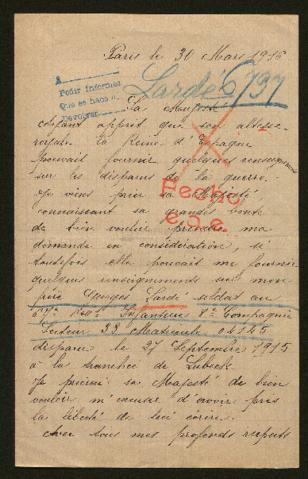 Paris le 30 Mars 1916
Pedir informes
que se haga y
devolver
Lardé 6737
Sa Majesté
ayant apprit que son altesse
royale la Reine d'Espagne
pouvait fournir quelques renseignements
sur les disparus de la guerre.
Je viens prier sa Majesté
connaissant sa grande bonté
de bien vouloir prendre ma
demande en considération, si
toutefois elle pouvait me fournir
quelques renseignements sur mon
frère Georges Lardé soldat au
Regt Infanterie 8e Compagnie
Secteur 32 Matricule 04545
disparu le 27 Septembre 1915
à la tranchée de Lubeck.
Je prierai sa Majesté de bien
vouloir m'excuser d'avoir pris
la liberté de lui écrire.
avec tous mes profonds respects
Fecho